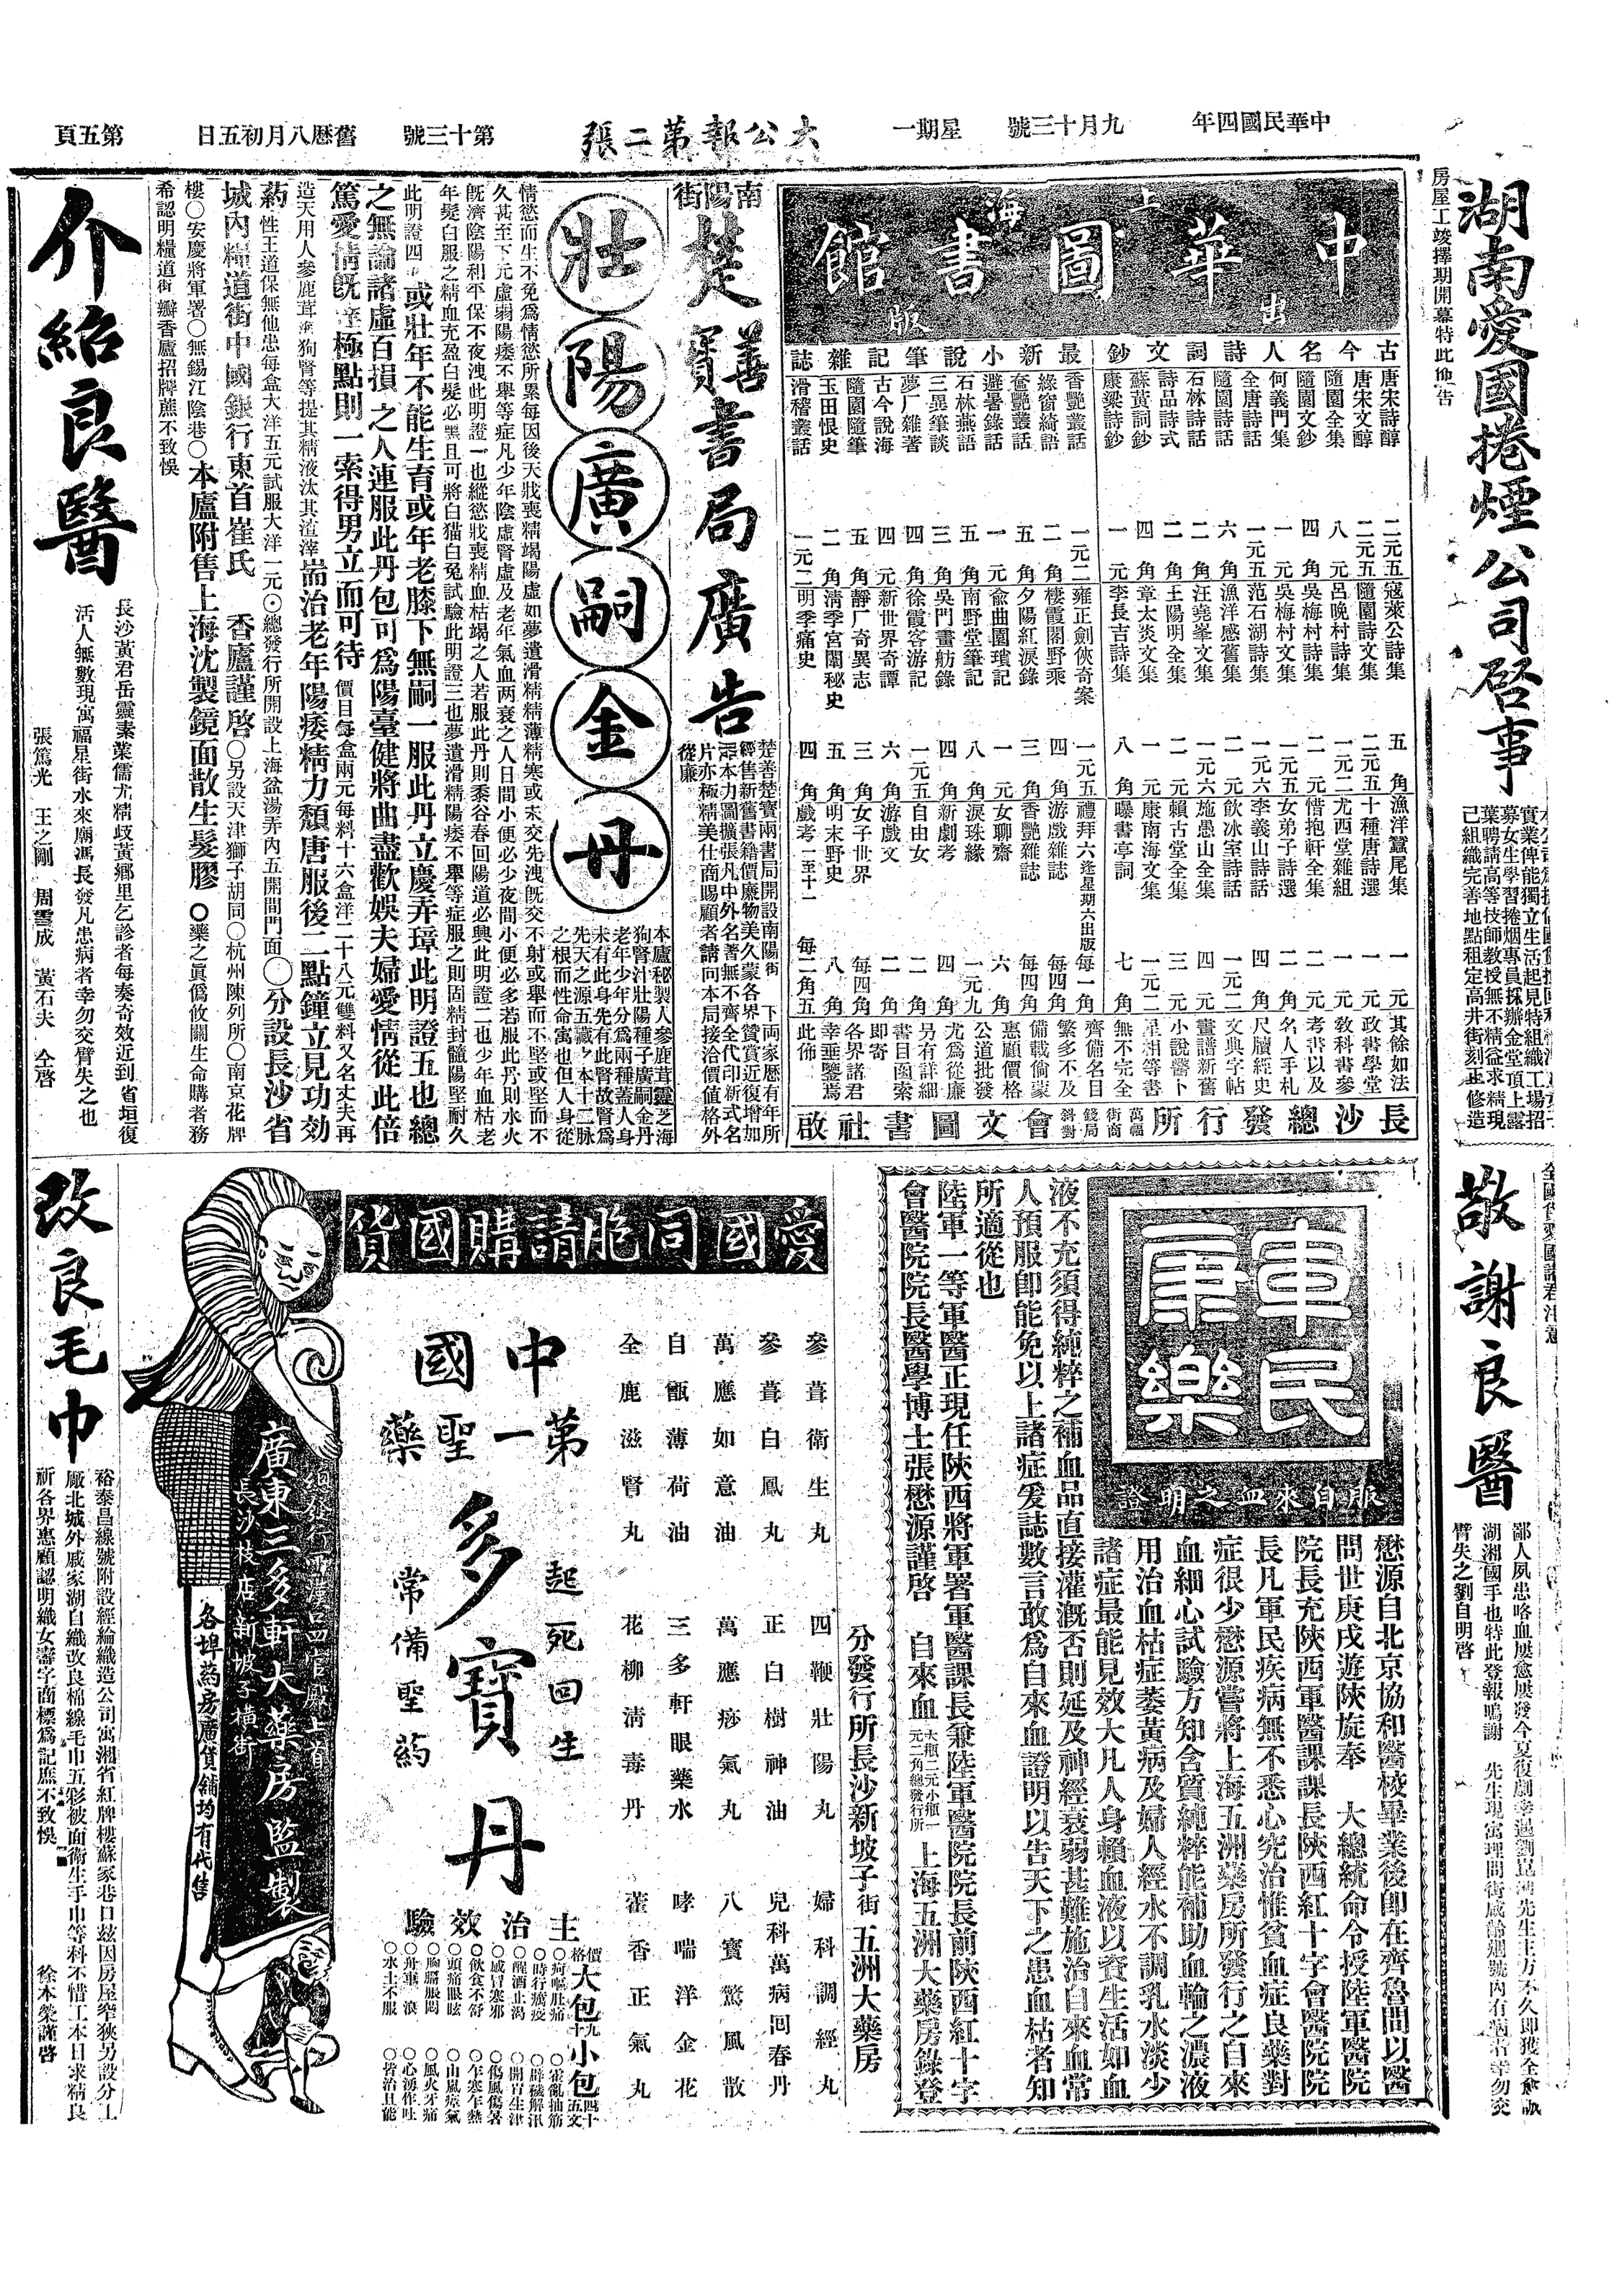 中華民國四年
九月十三號
星期一
大公報第二張
第十三號
舊曆八月初五日
第五頁
湖南愛國捲煙公司啓事
實業俾能獨立生活起見特組織工場招
募女生學習捲烟專員採辦金堂頂上露
葉聘請高等技師教授無不精益求精現
己組織完善地點租定高井街刻正修造
房屋工竣擇期開幕特此佈告
敬謝良醫
鄙人夙患咯血屢愈屢發今夏復劇幸遇
湖湘國手也特此登報鳴謝 先生現寓理問街
臂失之劉自明啓
上海
中華圖書館
出版
古今名人詩詞文鈔
唐宋詩醇 二元五
唐宋文醇 二元五
隨園全集 八元
隨園文鈔 四角
何義門集 一元
全唐詩話 一元五
隨園詩話 六角
石林詩話 二角
詩品詩式 二角
蘇黃詞鈔 四角
康梁詩鈔 一元
寇萊公詩集 五角
隨園詩文集 二元五
呂晚村詩集 一元二
吳梅村詩集 二元
吳梅村文集 一元五
范石湖詩集 一元六
漁洋感舊集 二元
汪堯峯文集 一元六
王陽明全集 二元
章太炎文集 一元
李長吉詩集 八角
漁洋蠶尾集 一元
十種唐詩選 一元
尤西堂雜組 二元
惜抱軒全集 二元
女弟子詩選 二角
李義山詩話 四角
飲冰室詩話 一元二
施愚山全集 四元
賴古堂全集 三元
康南海文集 一元二
曝書亭詞 七角
最新小說筆記雜誌
香艷叢話 一元二
綠窗綺語 二角
奩艷叢話 五角
避暑錄話 一元
石林燕語 五角
三異筆談 三角
夢厂雜著 四角
古今說海 四元
隨園隨筆 五角
玉田恨史 二角
滑稽叢話 一元二
雍正劍俠奇案 一元五
棲霞閣野乘 四角
夕陽紅淚錄 三角
俞曲園瑣記 一元
南野堂筆記 八角
吳門畫舫錄 四角
徐霞客游記 一元五
新世界奇譚 六角
靜厂奇異志 三角
清季宮闈秘史 五角
明季痛史 四角
禮拜六逢星期六出版 每一角
游戲雜誌 每四角
香艷雜誌 每四角
女聊齋 六角
淚珠緣 一元九
新劇考 四角
自由女 一角
游戲文 二角
女子世界 每四角
明末野史 八角
戲考一至十一 每二角五
其餘如法
政書學堂
敎科書參
考書以及
名人手札
尺牘經史
文典字帖
畫譜新舊
小說醫卜
星相等書
無不完全
齊備名目
繁多不及
備載倘蒙
惠顧價格
公道批發
尤爲從廉
另有詳細
書目函索
即寄
各界諸君
幸垂鑒焉
此佈
長沙總發行所
會文圖書社啟
南陽街
楚善寶書局廣告
楚善楚寶兩書局開設南陽街 下兩家歷有年所
經售新舊書籍價廉物美久蒙各界贊賞近復增加
本力圖擴張凡中外名著無不齊全代印新式名
片亦極精美仕商賜顧者請向本局接洽價値格外
從廉
壯陽廣嗣金丹
本廬秘製人參鹿茸靈芝海
狗腎汁壯陽種子廣嗣金丹
老年少年分爲兩種蓋人身
未有此身先有此腎故腎爲
先天之源五臟之本十二脉
之根而性命寓也但人身從
情慾而生不免爲情慾所累每因後天戕喪精竭陽虛如夢遺滑精精薄精寒或未交先洩旣交不射或舉而不堅或堅而不
久甚至下元虛弱陽痿不舉等症凡少年陰虛腎虛及老年氣血兩衰之人日間小便必少夜間小便必多若服此丹則水火
旣濟陰陽和平保不夜洩此明證一也縱慾戕喪精血枯竭之人若服此丹則黍谷春回陽道必興此明證二也少年血枯老
年髮白服之精血充盈白髮必黑且可將白猫白兔試驗此明證三也夢遺滑精陽痿不舉等症服之則固精封髓陽堅耐久
此明證四 或壯年不能生育或年老膝下無嗣一服此丹立慶弄璋此明證五也總
之無論諸虛百損之人連服此丹包可爲陽臺健將曲盡歡娛夫婦愛情從此倍
篤愛情旣達極點則一索得男立而可待 價目每盒兩元每料十六盒洋二十八元雙料又名丈夫再
造天用人參鹿茸海狗腎等提其精液汰其渣滓耑治老年陽痿精力頹唐服後二點鐘立見功効
葯性王道保無他患每盒大洋五元試服大洋一元⊙總發行所開設上海盆湯弄內五開間門面〇分設長沙省
城內糧道街中國銀行東首崔氏 香廬謹啓〇另設天津獅子胡同〇杭州陳列所〇南京花牌
樓〇安慶將軍署〇無錫江陰巷〇本廬附售上海沈製鏡面散生髮膠 〇藥之眞僞攸關生命購者務
希認明糧道街 瓣香廬招牌庶不致悞
介紹良醫
長沙黃君岳靈素業儒尤精歧黃鄉里乞診者每奏奇效近到省垣復
活人無數現寓福星街水來廟馮長發凡患病者幸勿交臂失之也
張篤光 王之剛 周雲成 黃石夫 仝啓
軍民康樂
服自來血之明證
懋源自北京協和醫校畢業後卽在齊魯間以醫
問世庚戌遊陜旋奉 大總統命令授陸軍醫院
院長充陜西軍醫課課長陜西紅十字會醫院院
長凡軍民疾病無不悉心究治惟貧血症良藥對
症很少懋源嘗將上海五洲藥房所發行之自來
血細心試驗方知含質純粹能補助血輪之濃液
用治血枯症萎黃病及婦人經水不調乳水淡少
諸症最能見效大凡人身賴血液以資生活如血
液不充須得純粹之補血品直接灌漑否則延及神經衰弱甚難施治自來血常
人預服卽能免以上諸症爰誌數言敢爲自來血證明以告天下之患血枯者知
所適從也
陸軍一等軍醫正現任陜西將軍署軍醫課長兼陸軍醫院院長前陜西紅十字
會醫院院長醫學博士張懋源謹啓 自來血 大瓶二元小瓶一元二角總發行所 上海五洲大藥房錄登
分發行所長沙新坡子街五洲大藥房
愛國同胞請購國貨
參茸衛生丸 四鞭壯陽丸 婦科調經丸
參茸白鳳丸 正白樹神油 兒科萬病囘春丹
萬應如意油 萬應痧氣丸 八寶驚風散
自甑薄荷油 三多軒眼藥水 哮喘洋金花
全鹿滋腎丸 花柳淸毒丹 藿香正氣丸
中國
第一聖藥
起死回生
多寶丹
常備聖葯
主治效驗
價格大包九十小包四十五文
〇時行癘疫
〇醒酒止渴
〇感冒寒邪
〇飲食不舒
〇頭痛眼眩
〇胸膈脹悶
〇舟車 浪
〇水土不服
〇霍亂抽筋
〇辟穢解汛
〇開胃生津
〇傷風傷暑
〇乍寒乍熱
〇山嵐瘴氣
〇風火牙痛
〇心湧作吐
〇皆治且能
廣東三多軒大藥房監製
長沙枝店新坡子橫街
各埠葯房廣貨舖均有代售
改良毛巾
裕泰昌線號附設經綸織造公司寓湘省紅牌樓蘇家巷口玆因房屋窄狹另設分工
廠北城外戚家湖自織改良棉線毛巾五彩被面衛生手巾等科不惜工本日求精良
祈各界惠顧認明織女壽字商標爲記庶不致悞
徐本榮謹啓